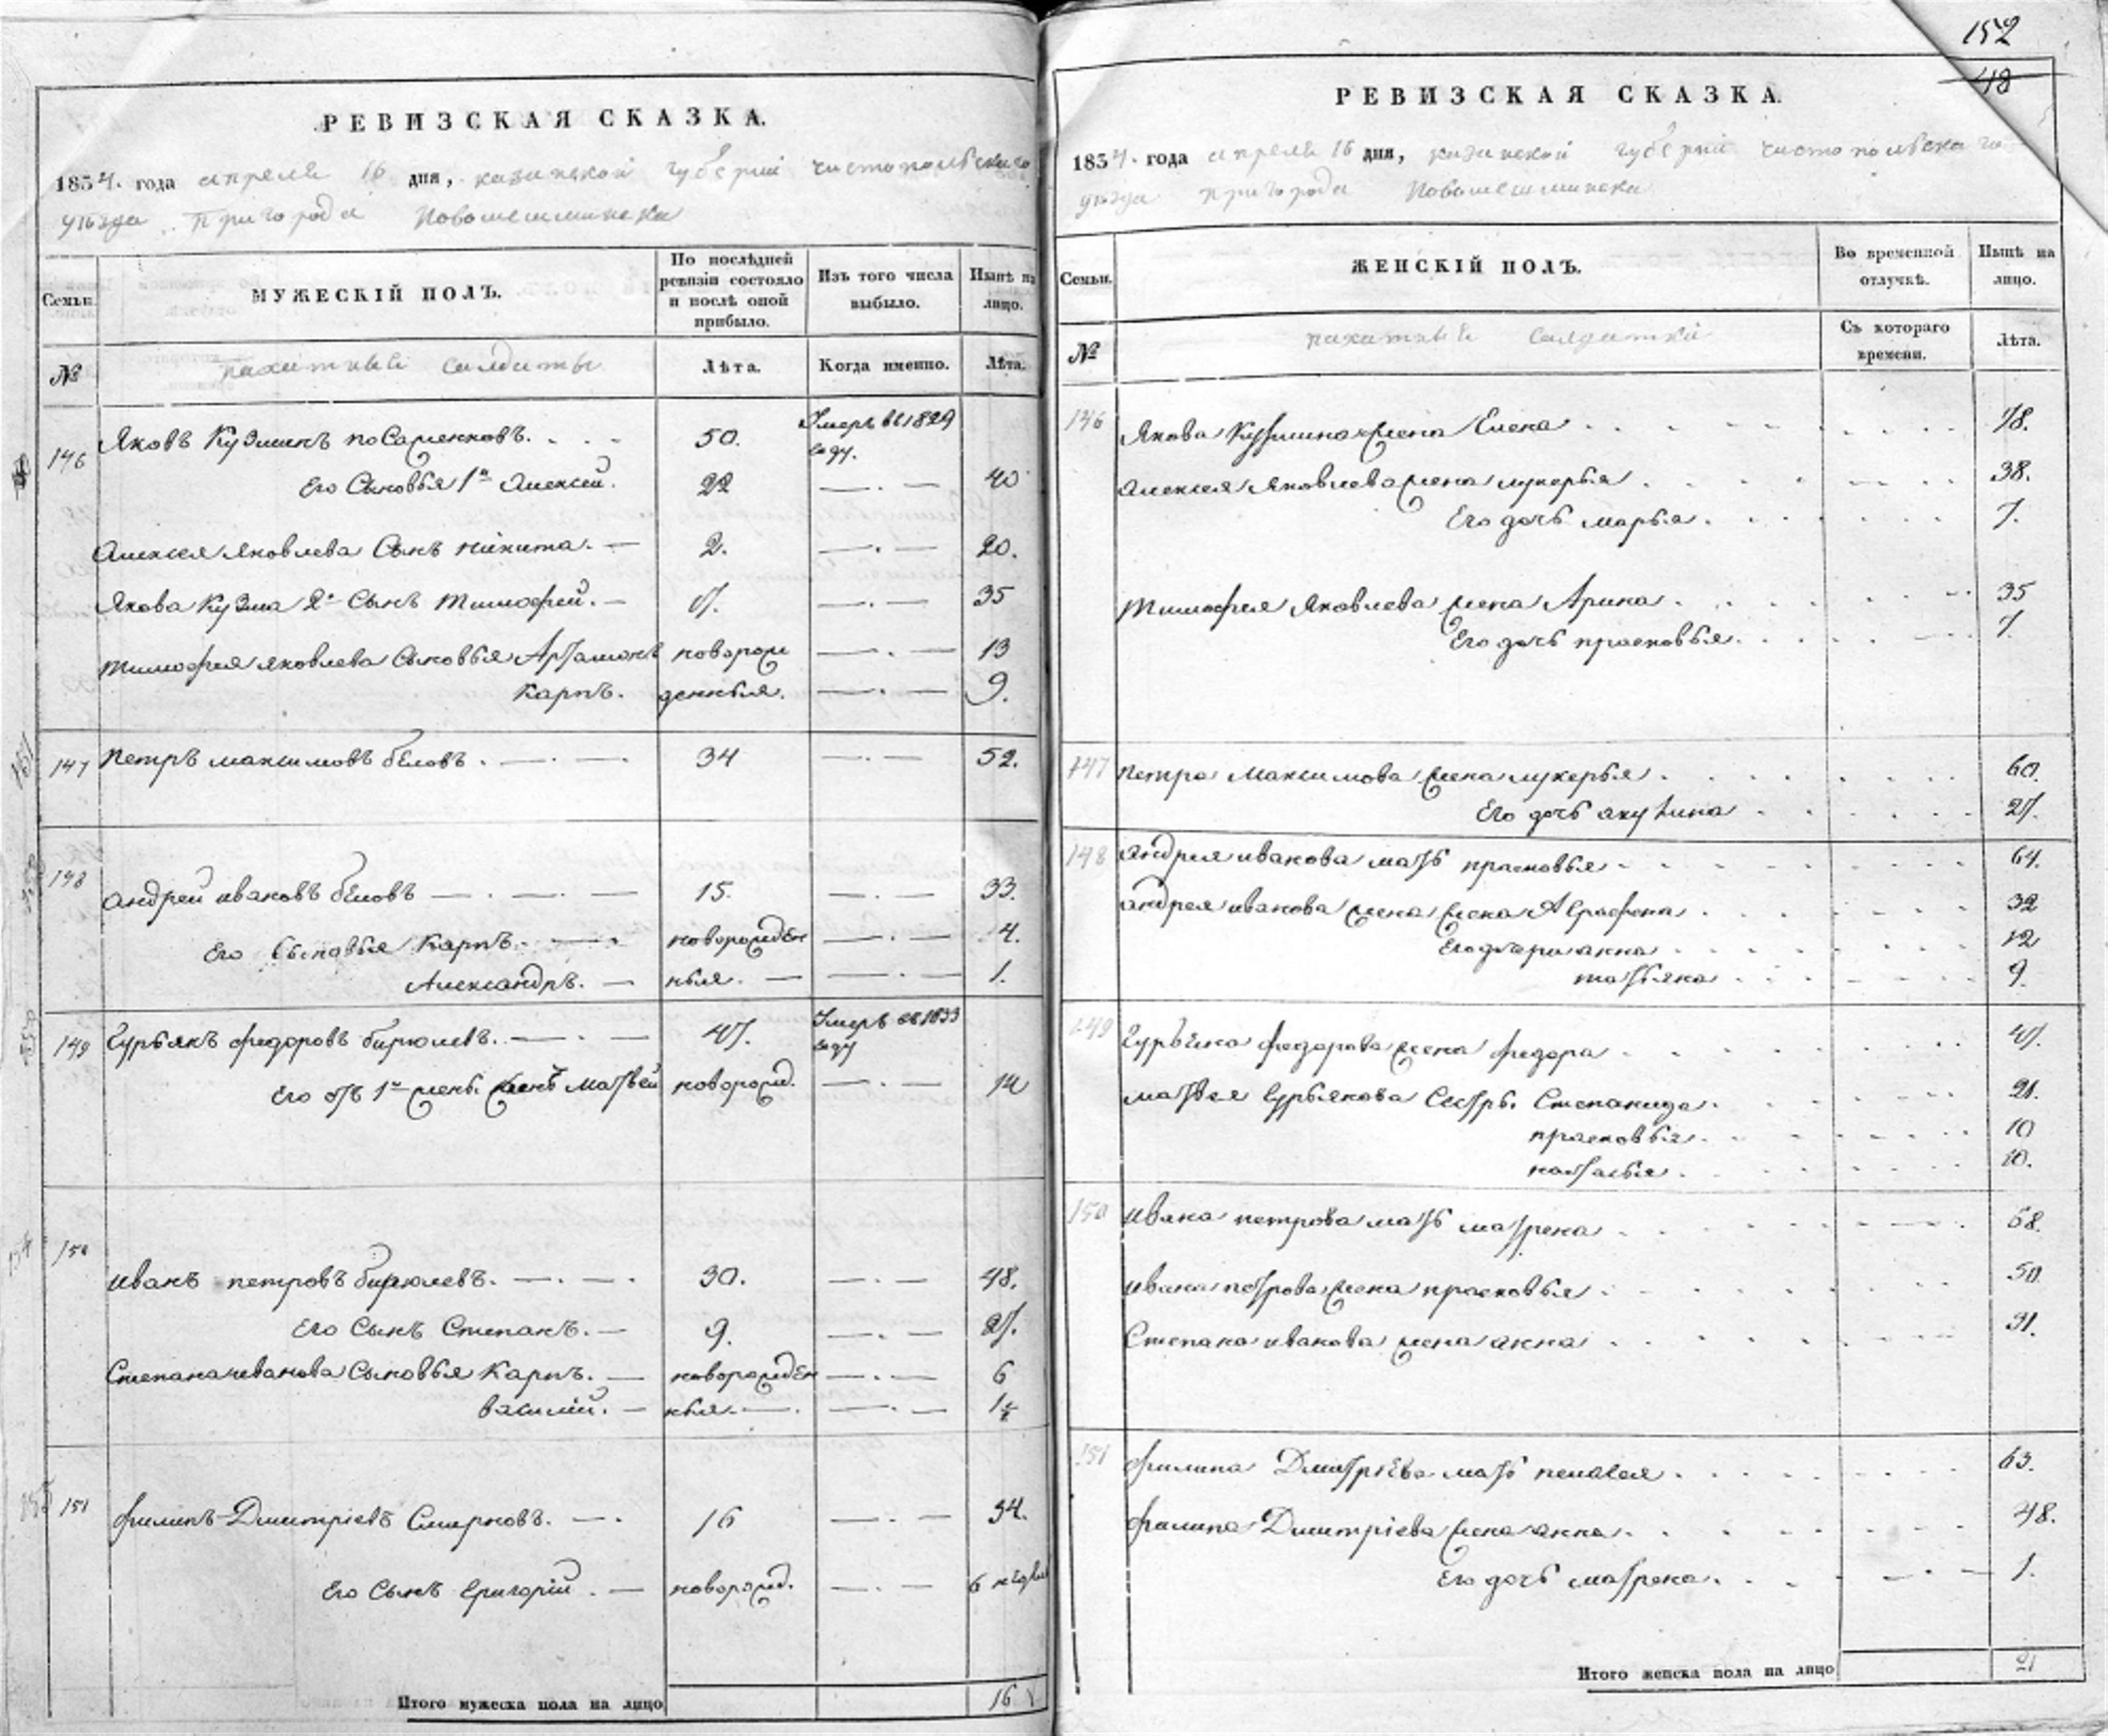 РЕВИЗСКАЯ СКАЗКА.
1834. года апреля 16 дня, казанской губерніи чистопольскаго
уѣзда пригорода Новошешминска
Семьи.
МУЖЕСКІЙ ПОЛЪ.
По послѣдней ревизіи состояло и послѣ оной прибыло.
Изъ того числа выбыло.
Нынѣ на лицо.
№
пахатныи салдаты
Лѣта.
Когда именно.
Лѣта.
146 Яковъ Кузминъ 50. Умеръ въ 1829 году.
Его Сыновья 1й Алексѣй. 22 40
Алексея Яковлева Сынъ никита. 2. 20.
Якова Кузма 2й Сынъ Тимофей. 17. 35
Тимофея яковлева Сыновья Артамонъ новорож 13
Карпъ. денныя. 9.
147 Петръ максимовъ бѣловъ. 34 52.
148 андрей ивановъ бѣловъ 15. 33.
Его Сыновья Карпъ. новорожден 4.
Александръ. ныя. 1.
149 Гурьянъ федоровъ бирюлевъ. 47. Умеръ въ 1833 году
Его отъ 1й жены Сынъ Матвей новорожд. 14
150 иванъ петровъ бирюлевъ. 30. 48.
Его Сынъ Степанъ. 9. 27.
Степана иванова Сыновья Карпъ. новорожден 6
василій. ныя. 1½
151 филипъ Дмитріевъ Смирновъ. 16 34.
Его Сынъ Григорій. новорожд. 6 недѣль
Итого мужеска пола на лицо 16
152
48
РЕВИЗСКАЯ СКАЗКА.
1834. года апреля 16 дня, казанской губерніи чистопольскаго
уѣзда пригорода Новошешминска
Семьи.
ЖЕНСКІЙ ПОЛЪ.
Во временной отлучкѣ.
Нынѣ на лицо.
№
пахатныи салдатки
Съ котораго времени.
Лѣта.
146 Якова Кузмина жена Елена 78.
алексея Яковлева жена лукерья 38.
Его дочь марья. 7.
Тимофея Яковлева жена Арина. 35
Его дочь прасковья. 7.
147 петра Максимова жена лукерья. 60.
Его дочь акулина 27.
148 андрея иванова мать прасковья 64.
андрея иванова жена Аграфена 32
Его дочери анна 12
татьяна 9.
149 Гурьяна федорова жена федора 47.
матвея Гурьянова Сестры Степанида. 21.
прасковья. 10
наталья. 10.
150 ивана петрова мать матрена 68.
ивана петрова жена прасковья 50
Степана иванова жена анна 31.
151 филипа Дмитрѣева мать пелагея. 63.
филипа Дмитріева жена анна. 48.
Его дочь матрена. 1.
Итого женска пола на лицо 21